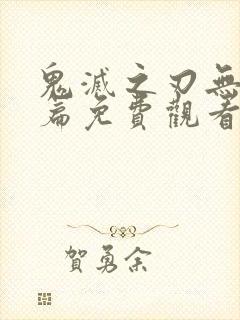 鬼滅之刃無
篇免費觀看
賀勇余